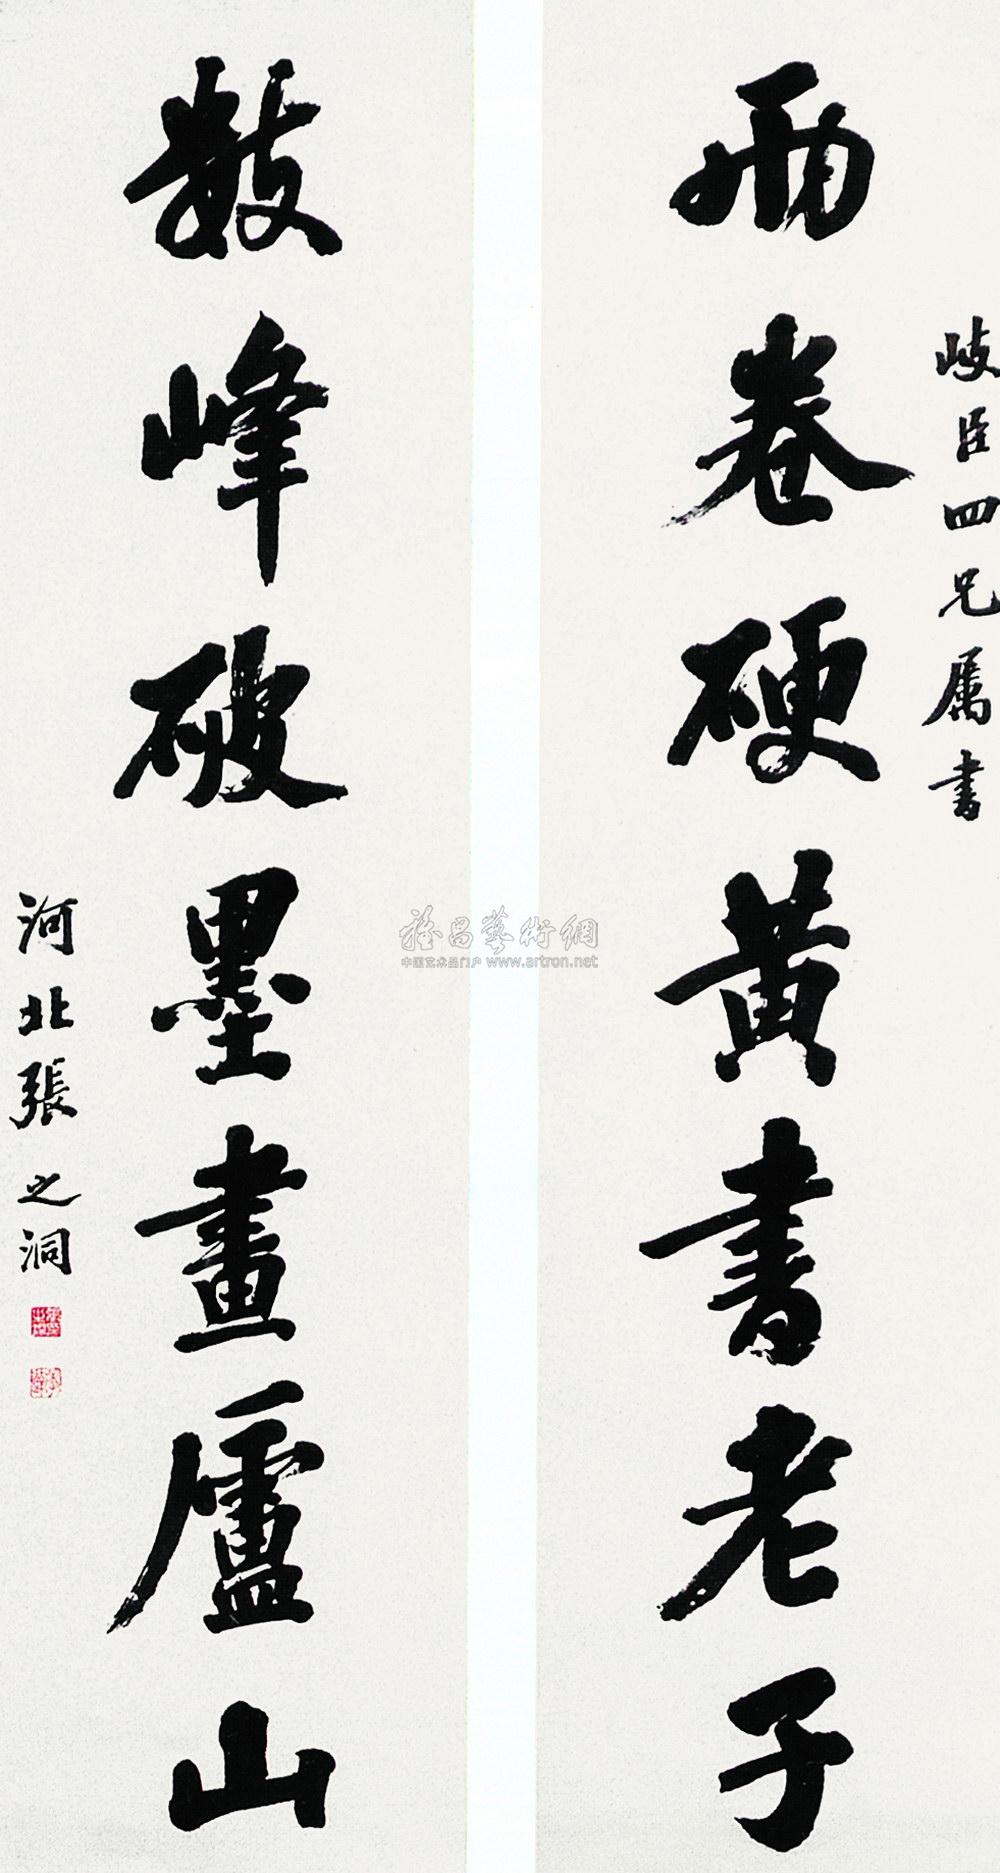 岐臣四兄属書
兩卷硬黄書老子
數峰破墨畫廬山
河北張之洞
雅昌藝術網
中国艺术品门户 www.artron.net